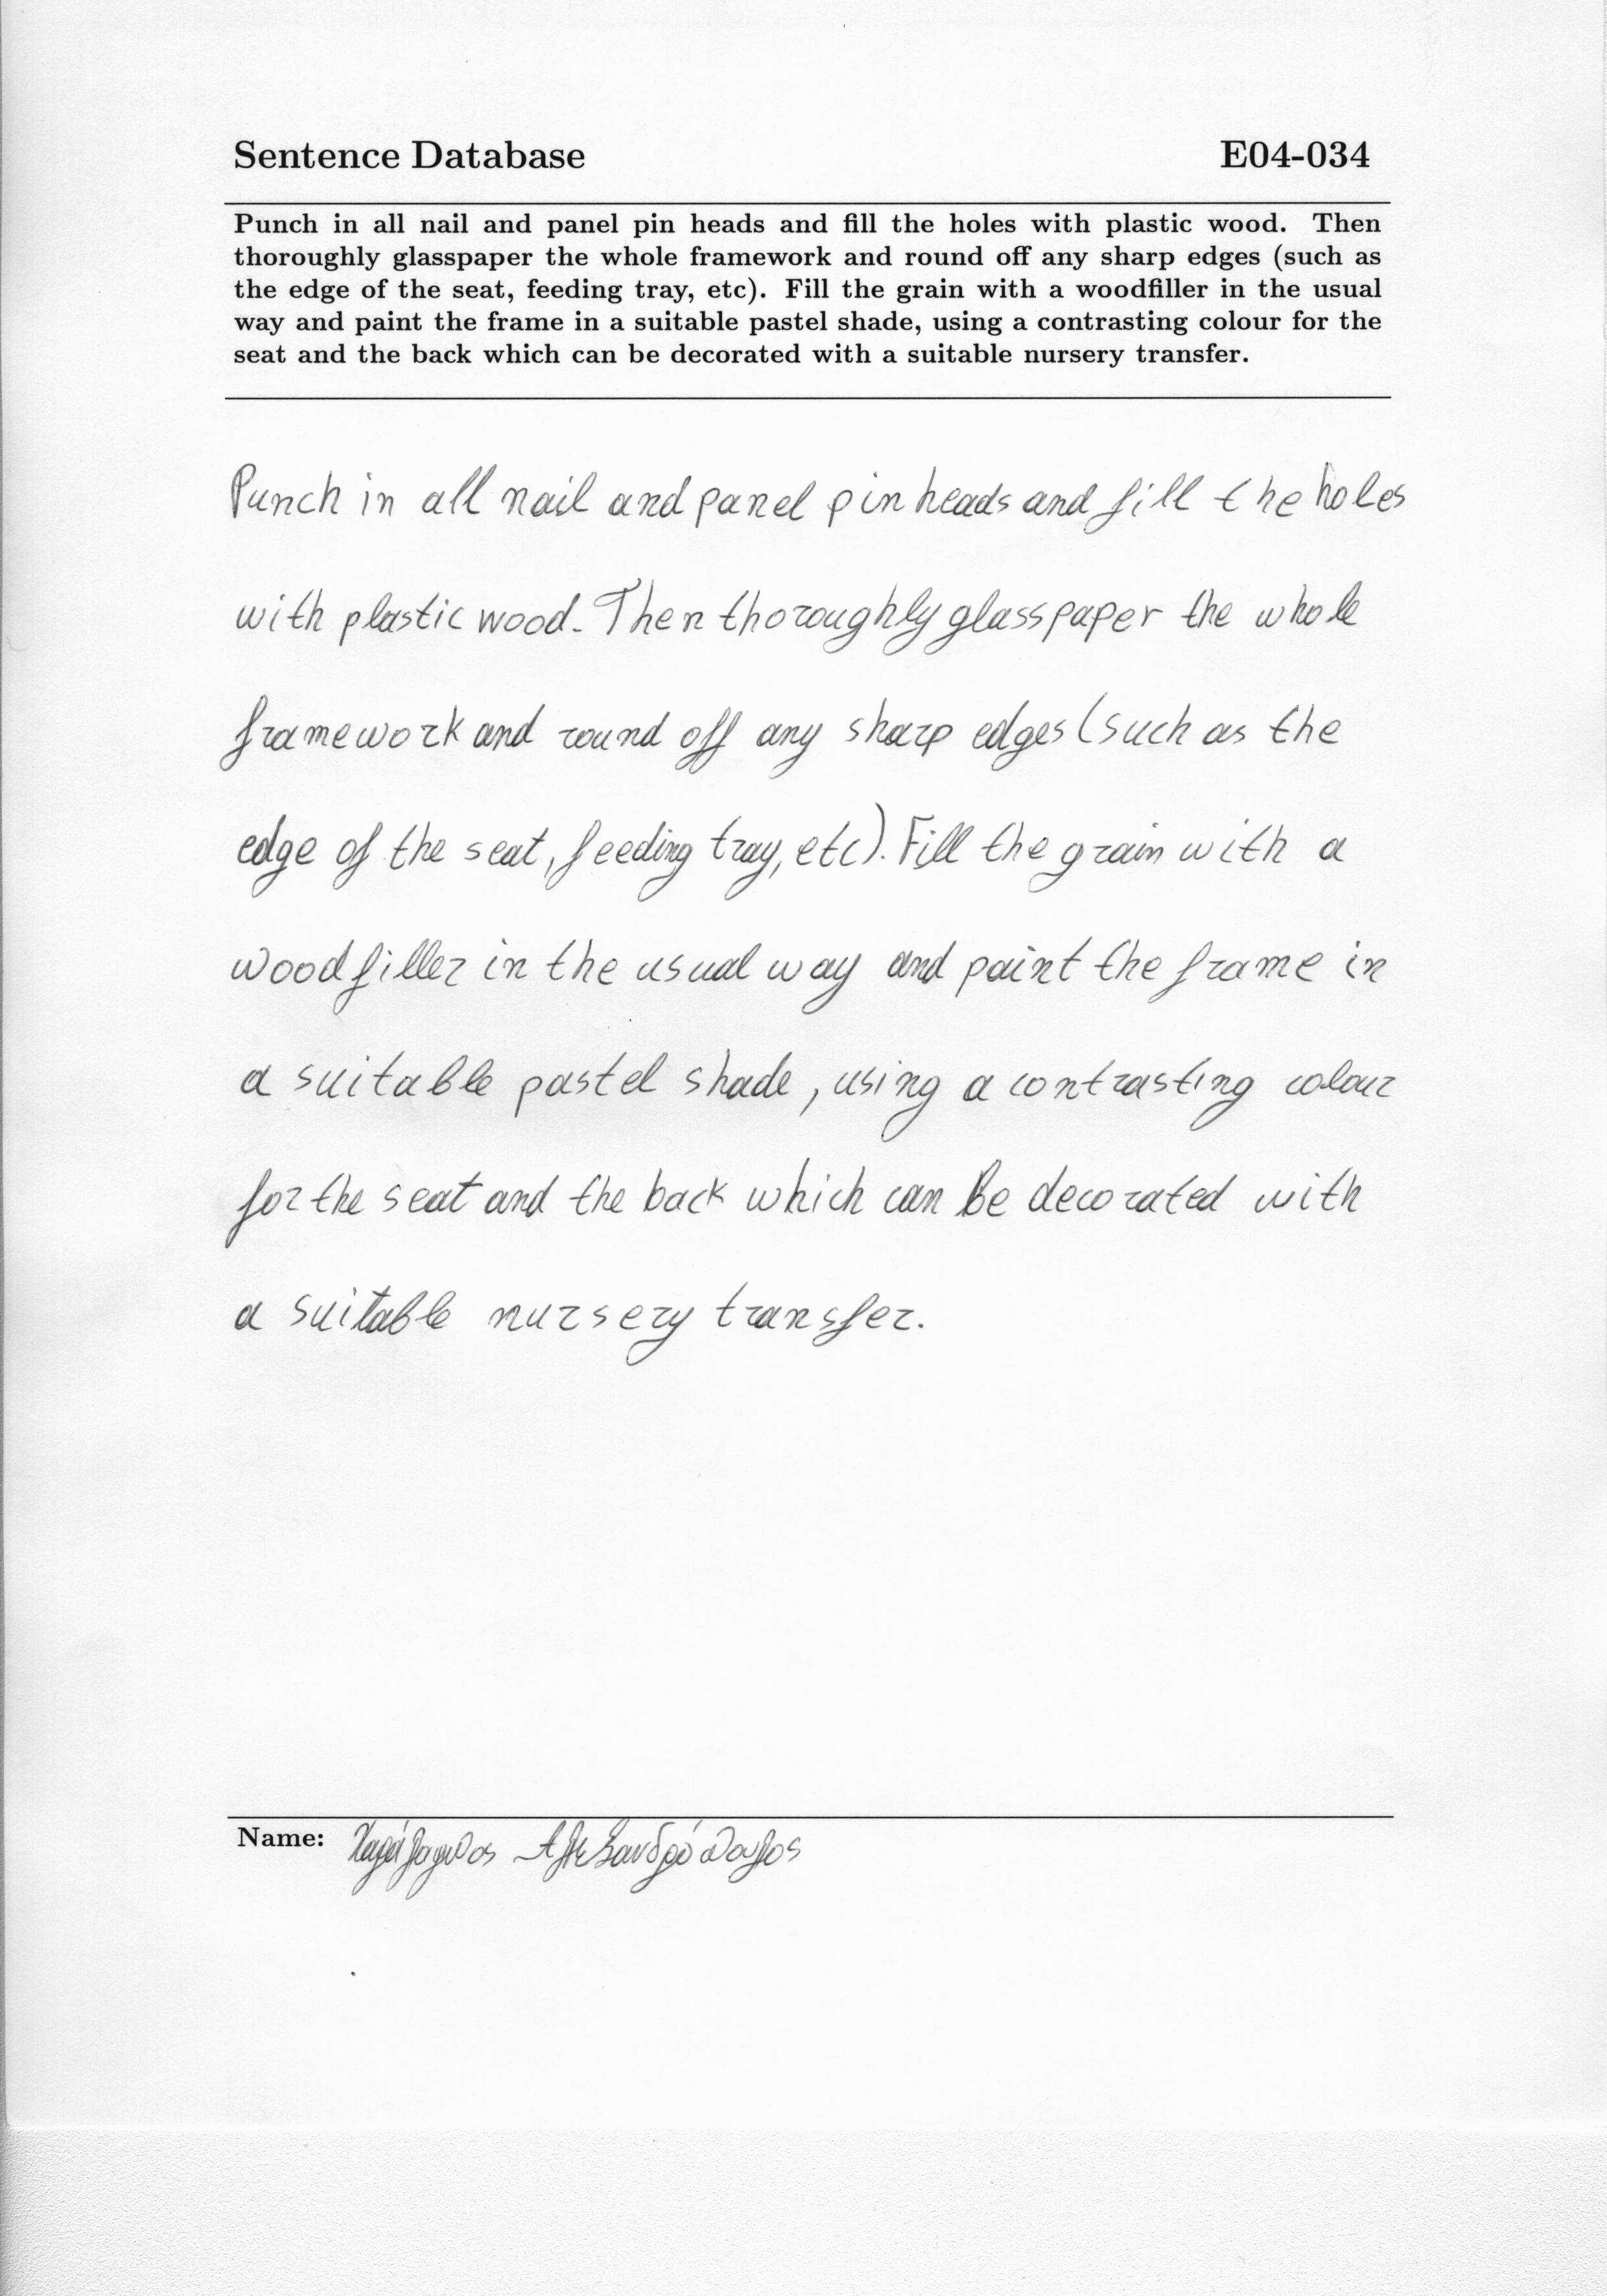 Sentence Database E04-034
Punch in all nail and panel pin heads and fill the holes with plastic wood. Then
thoroughly glasspaper the whole framework and round off any sharp edges (such as
the edge of the seat, feeding tray, etc). Fill the grain with a woodfiller in the usual
way and paint the frame in a suitable pastel shade, using a contrasting colour for the
seat and the back which can be decorated with a suitable nursery transfer.
Punch in all nail and panel pin heads and fill the holes
with plastic wood. Then thoroughly glasspaper the whole
framework and round off any sharp edges (such as the
edge of the seat, feeding tray, etc). Fill the grain with a
woodfiller in the usual way and paint the frame in
a suitable pastel shade, using a contrasting colour
for the seat and the back which can be decorated with
a suitable nursery transfer.
Name: Χαράλαμπος Αλεξανδρόπουλος